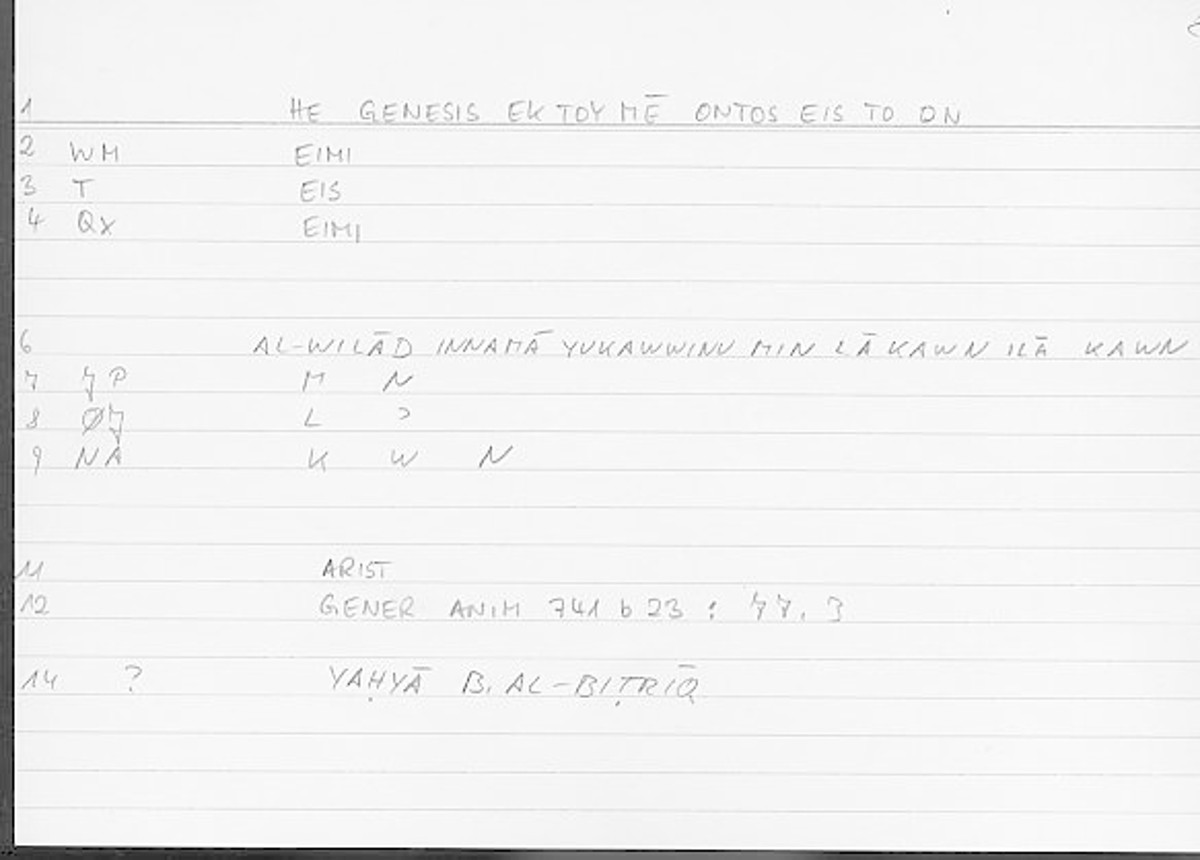 1 HE GENESIS EK TOY MĒ ONTOS EIS TO ON
2 WM EIMI
3 T EIS
4 QX EIMI
6 AL-WILĀD INNAMĀ YUKAWWINU MIN LĀ KAWN ILĀ KAWN
7 P M N
8 L Ɔ
9 NA K W N
11 ARIST
12 GENER ANIM 741 b 23 : 77.3
14 ? YAḤYĀ B. AL-BIṬRĪQ